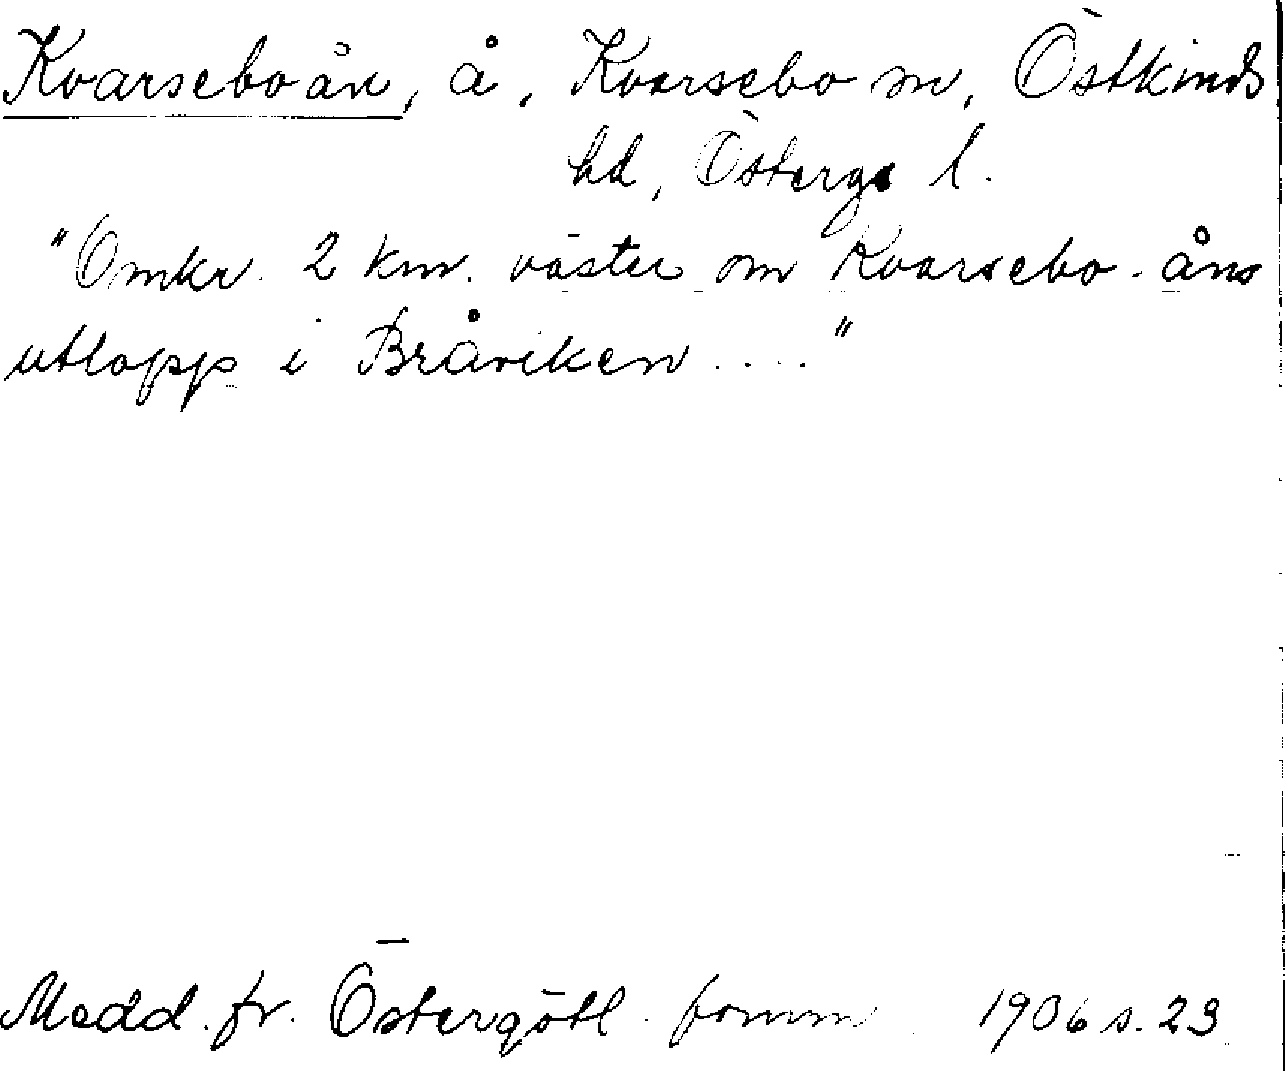 Kvarseboån, å, Kvarsebo sn, Östkinds
hd, Östergs l.
"Omkr. 2 km. väster om Kvarsebo-åns
utlopp i Bråviken ...."
Medd. fr. Östergötl. fornm. 1906 s. 23